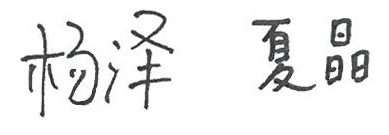 杨泽 夏晶